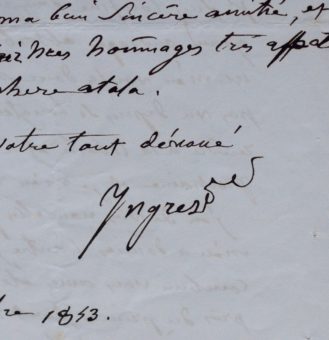 ma bien sincère amitié, et
mes hommages très affect
chere atala.
votre tout dévoué
Ingres
bre 1853.